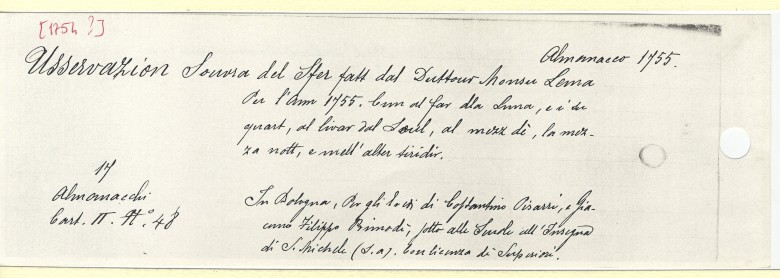 [1754?]
Almanacco 1755.
Usservazion Souvra del Sfer fatt dal Duttour Monsu Lema
Per l'Ann 1755. Cun al far dla Luna, e i su
quart, al livar dal Soul, al mezz dè, la mez-
za nott, e mell'alter siridir.
17
Almanacchi
Cart. II. N.º 48
In Bologna, Per gli Eredi di Costantino Pisarri, e Gia-
como Filippo Primodì, sotto alle Scuole all'Insegna
di S. Michele (s.a). Con licenza di Superiori.